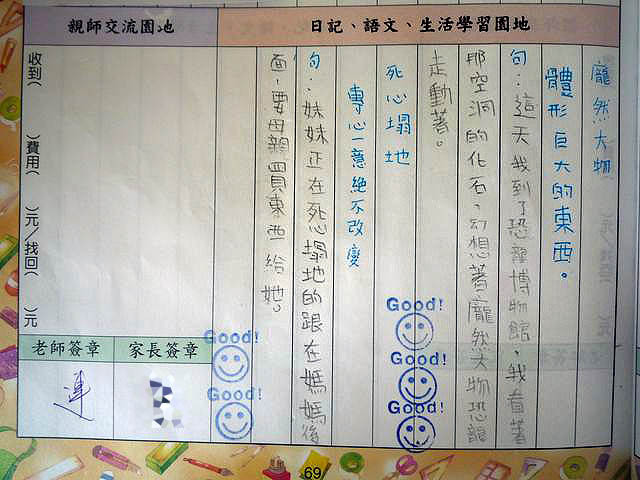 親師交流園地
日記、語文、生活學習園地
龐然大物
體形巨大的東西。
句:這天我到了恐龍博物館,我看著
那空洞的化石,幻想著龐然大物恐龍
走動著。
死心塌地
專心一意絕不改變
句:妹妹正在死心塌地的跟在媽媽後
面,要母親買東西給她。
收到( )費用( )元/找回( )元
Good!
Good!
Good!
Good!
Good!
老師簽章
家長簽章
連
69